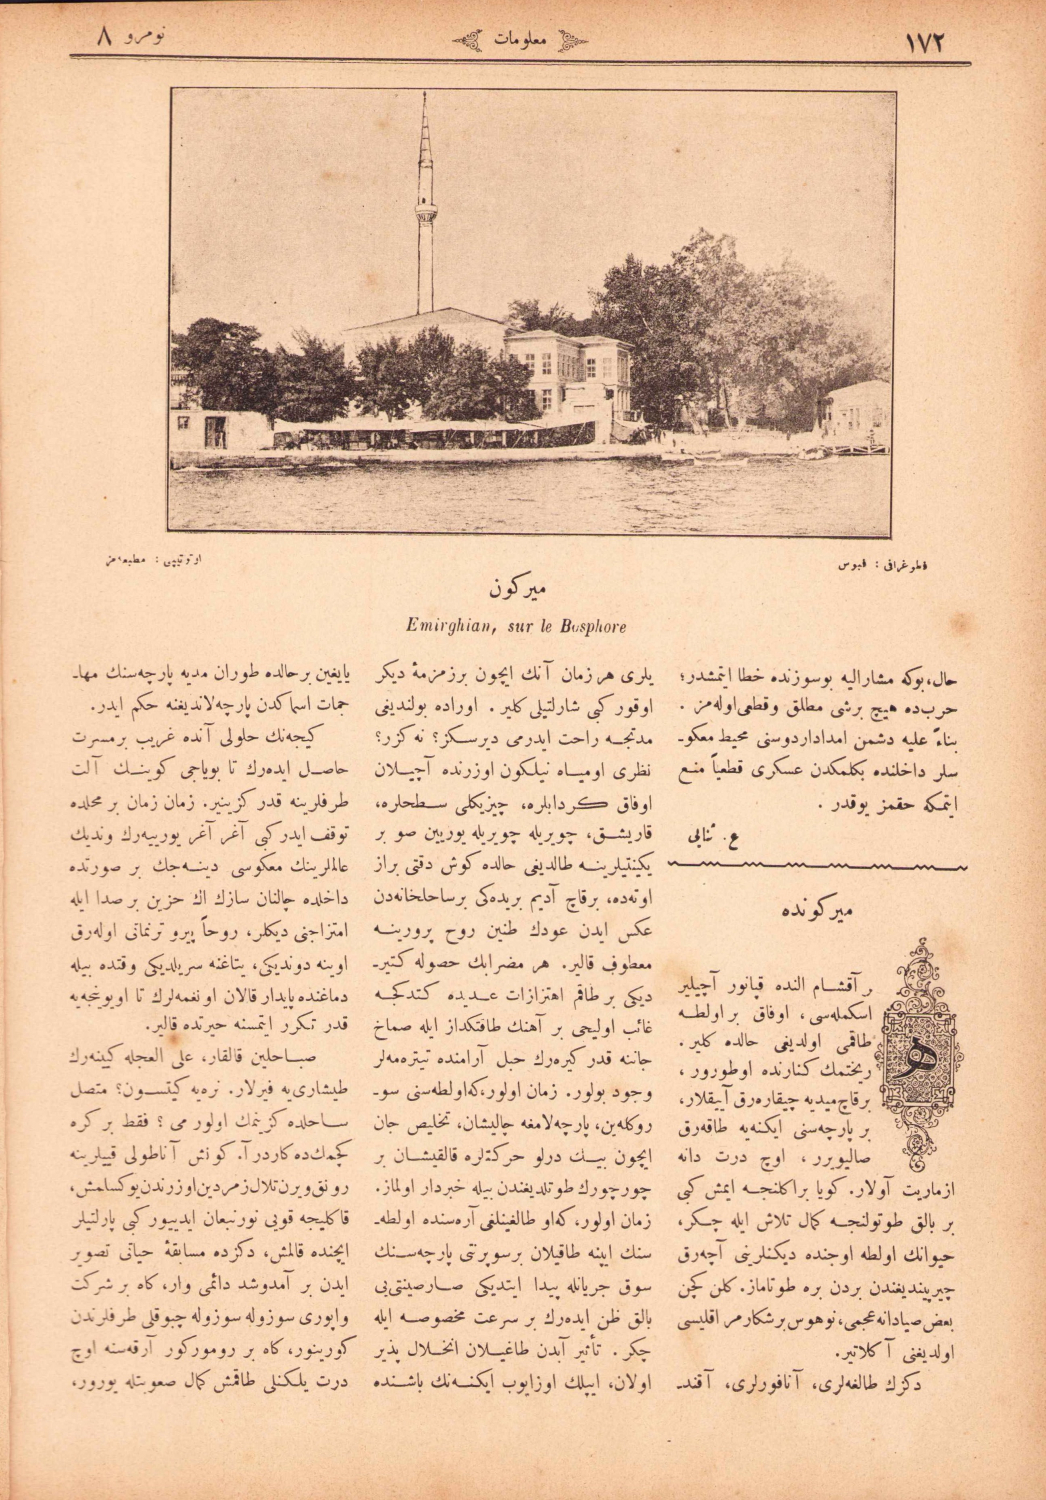 ١٧٢
معلومات
نومرو ٨
فطوغرافی : فبوس
اوتوتیپی : مطبعه‌مز
میرکون
Emirghian, sur le Bosphore
حال،بوکه مشارالیه بوسوزنده خطا ایتمشدر؛
حرب‌ده هیچ برشی مطلق وقطعی‌اوله‌مز .
بناءً علیه دشمن امداداردوسنی محیط معکو۔
سلر داخلنده بکلمکدن عسکری قطعیاً منع
ایتمکه حقمز یوقدر .
ع. ثنائی
میرکونده
هر آقشام النده قپانور آچیلیر
اسکمله‌سی، اوفاق بر اولطه
طاقمی اولدیغی حالده کلیر .
ریختمك کنارنده اوطورور ،
برقاچ‌میدیه چیقاره‌رق آییقلار،
بر پارچه‌سنی ایکنه‌یه طاقه‌رق
صالیویرر ، اوچ درت دانه
ازماریت آولار. کویا براکلنجه ایمش کبی
بر بالق طوتولنجه کمال تلاش ایله چکر،
حیوانك اولطه اوجنده دیکنلرینی آچه‌رق
چیرپیندیغندن بردن بره طوتاماز. کلن کچن
بعض‌صیادانه‌عجمی،نوهوس‌برشکارمر اقلیسی
اولدیغنی آکلاتیر.
دکزك طالغه‌لری، آنافورلری، آقند۔
یلری هر زمان آنك ایچون برزمزمهٔ دیکر
اوقور کبی شارلتیلی کلیر . اوراده بولندیغی
مدتجه راحت ایدرمی دیرسکز؟ نه کزر؟
نظری اومیاه نیلکون اوزرنده آچیلان
اوفاق کردابلره، چیزیکلی سطحلره،
قاریشق، چویریله چویریله یوریین صو بر
یکنتیلرینه طالدیغی حالده کوش دقتی براز
اوته‌ده، برقاچ آدیم بریده‌کی برساحلخانه‌دن
عکس ایدن عودك طنین روح پرورینه
معطوف قالیر. هر مضرابك حصوله کتیر۔
دیکی بر طاقم اهتزازات عدیده کتدکجه
غائب اولیجی بر آهنك طاقتکداز ایله صماخ
جاننه قدر کیره‌رك حبل آرامنده تیتره‌مه‌لر
وجود بولور. زمان اولور،که‌اولطه‌سنی سو۔
روکله‌ین، پارچه‌لامغه چالیشان، تخلیص جان
ایچون بیك درلو حرکتلره قالقیشان بر
چورچورك طوتلدیغندن بیله خبردار اولماز.
زمان اولور، که‌او طالغینلغی آره‌سنده اولطه۔
سنك ایپنه طاقیلان برسوپرنتی پارچه‌سنك
سوق جریانله پیدا ایتدیکی صارصینتی‌یی
بالق ظن ایده‌رك بر سرعت مخصوصه ایله
چکر . تأثیر آبدن طاغیلان انخلال پذیر
اولان، ایپلك اوزایوب ایکنه‌نك باشنده
یایغین برحالده طوران مدیه پارچه‌سنك مها۔
جمات اسماکدن پارچه‌لاندیغنه حکم ایدر.
کیجه‌نك حلولی آنده غریب برمسرت
حاصل ایده‌رك تا بویاجی کوینك آلت
طرفلرینه قدر کزینیر. زمان زمان بر محلده
توقف ایدر کبی آغر آغر یورییه‌رك وندیك
عالملرینك معکوسی دینه‌جك بر صورتده
داخلده چالنان سازك اك حزین بر صدا ایله
امتزاجنی دیکلر، روحاً پیرو ترنماتی اوله‌رق
اوینه دوندیکی، یتاغنه سریلدیکی وقتده بیله
دماغنده پایدار قالان او نغمه‌لرك تا اویونجه‌یه
قدر تکرر ایتمسنه حیرتده قالیر.
صباحلین قالقار، علی العجله کیینه‌رك
طیشاری‌یه فیرلار. نره‌یه کیتسون؟ متصل
ساحلده کزینمك اولور می ؟ فقط بر کره
کچمك‌ده کاردر آ. کونش آناطولی قییلرینه
رونق‌ویرن‌تلال‌زمردین‌اوزرندن‌یوکسلمش،
قاکلیجه قویی نورنبعان ایدییور کبی پارلتیلر
ایچنده قالمش، دکزده مسابقهٔ حیاتی تصویر
ایدن بر آمدوشد دائمی وار، کاه بر شرکت
واپوری سوزوله سوزوله چبوقلی طرفلرندن
کورینور، کاه بر رومورکور آرقه‌سنه اوچ
درت یلکنلی طاقمش کمال صعوبتله یورور،